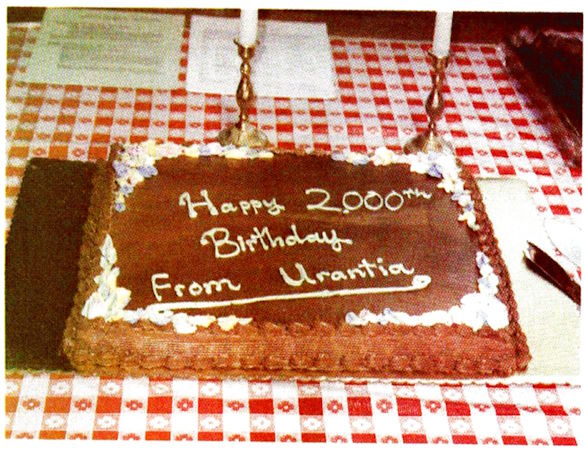 Happy 2,000th
Birthday
From Urantia